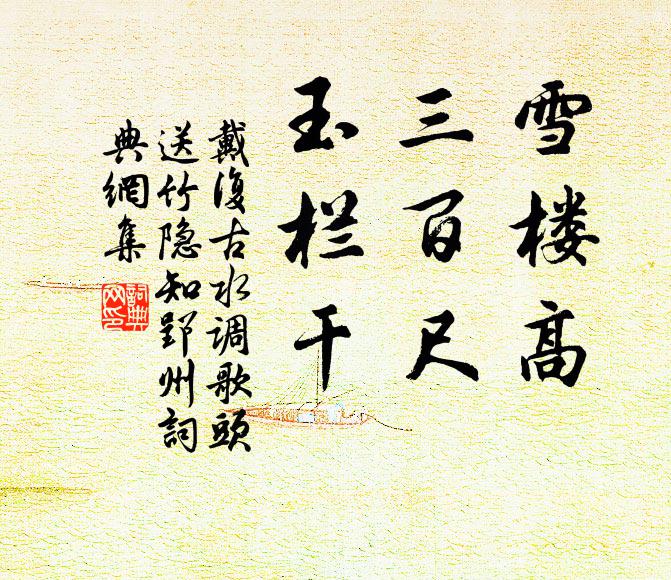 雪楼高
三百尺
玉栏干
戴復古水调歌頭
送竹隐知郢州詞
典網集
詞典网印